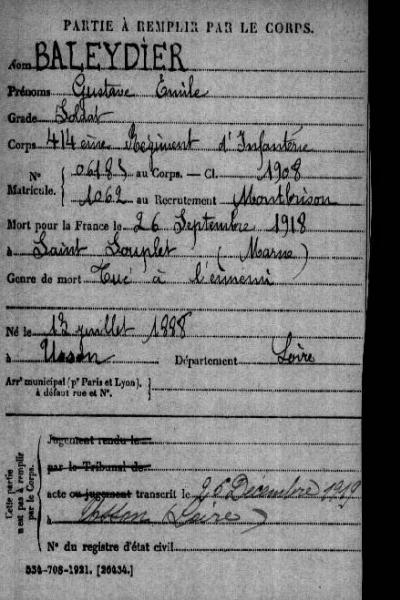 PARTIE À REMPLIR PAR LE CORPS.
Nom BALEYDIER
Prénoms Gustave Émile
Grade Soldat
Corps 414ème Régiment d'Infanterie
N° 06185 au Corps. — Cl. 1908
Matricule. 1062 au Recrutement Montbrison
Mort pour la France le 26 Septembre 1918
à Saint Souplet (Marne)
Genre de mort Tué à l'ennemi
Né le 13 juillet 1888
à Usson Département Loire
Arrt municipal (pr Paris et Lyon),
à défaut rue et N°.
Cette partie
n'est pas à remplir
par le Corps.
Jugement rendu le
par le Tribunal de
acte ou jugement transcrit le 26 Decembre 1919
à Usson (Loire)
N° du registre d'état civil
534-708-1921. [26434.]